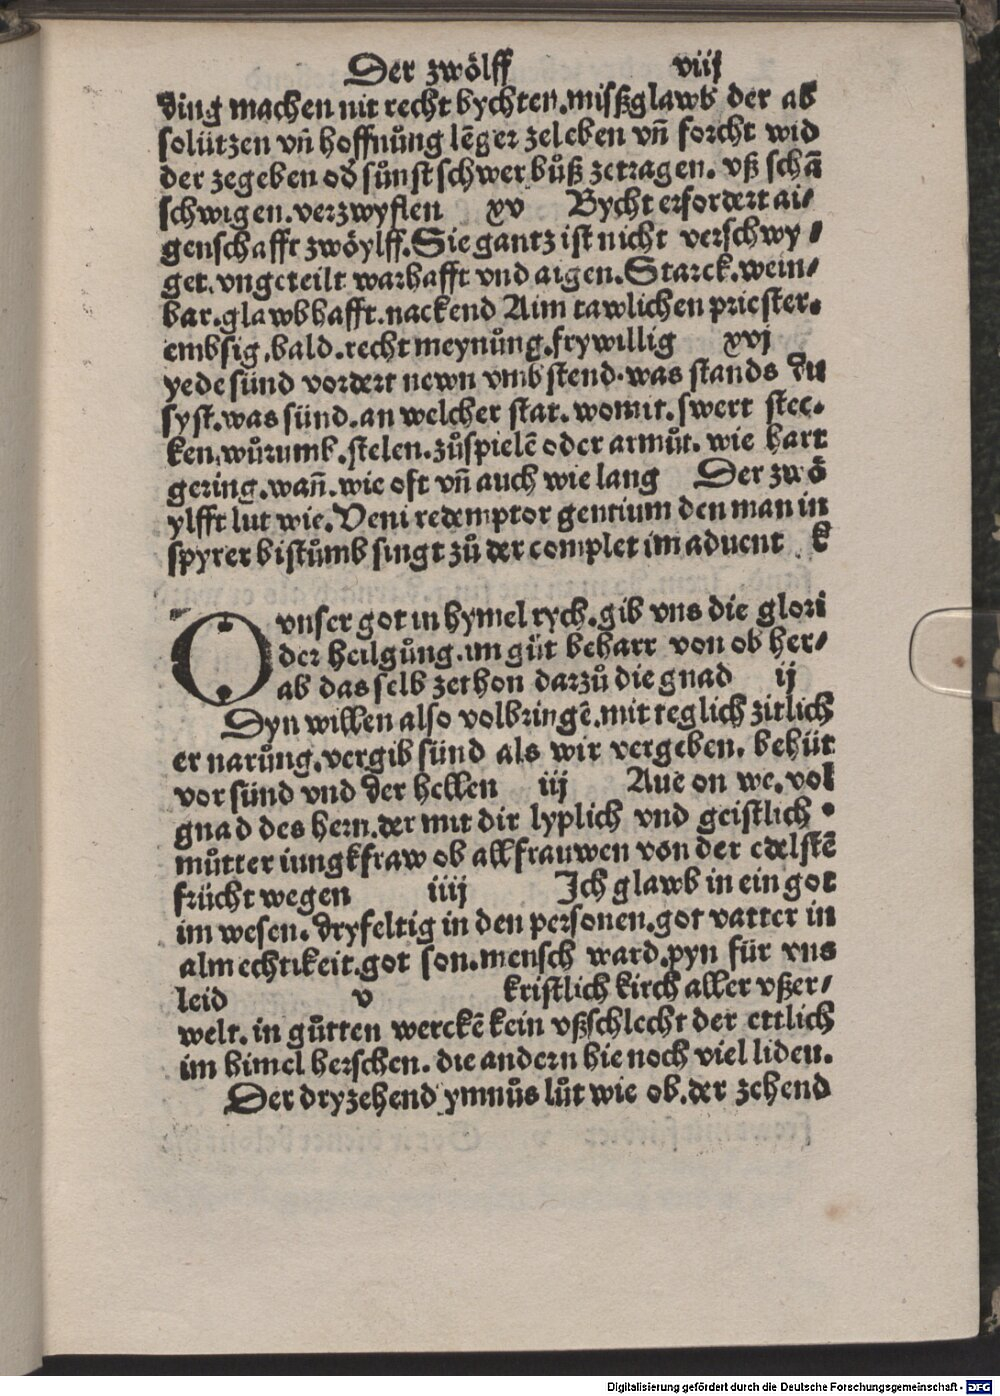 Der zwölff viij
ding machen nit recht bychten.mißglawb der ab
solützen vn̄ hoffnůng lēger zeleben vn̄ forcht wid
der zegeben od sůnst schwer bůß zetragen. vß schā
schwigen.verzwyflen xv Bycht erfordert ai⸗
genschafft zwöylff.Sie gantz ist nicht verschwy⸗
get.vngeteilt warhafft vnd aigen.Starck.wein⸗
bar.glawbhafft.nackend Aim tawlichen priester.
embsig.bald.recht meynůng.frywillig xvj
yede sünd vordert newn vmbstend.was stands du
syst.was sünd.an welcher stat.womit.swert stec.
ken.wůrumb.stelen.zůspielē oder armůt.wie hart
gering.wan̄.wie oft vn̄ auch wie lang Der zwö
ylfft lut wie.Veni redemptor gentium den man in
spyrer bistůmb singt zů der complet im aduent k
O vnser got in hymelrych.gib vns die glori
der heilgůng.im güt beharr von ob her⸗
ab das selb zethon darzů die gnad ij
Dyn willen also volbringē.mit teglich zitlich
er narůng.vergib sünd als wir vergeben. behüt
vor sünd vnd der hellen iij Aue on we.vol
gnad des hern.der mit dir lyplich vnd geistlich .
můtter iungkfraw ob all frauwen von der edelstē
frücht wegen iiij Ich glawb in ein got
im wesen.dryfeltig in den personen.got vatter in
almechtikeit.got son.mensch ward.pyn für vns
leid v kristlich kirch aller vßer⸗
welt.in gůtten werckē kein vßschlecht der ettlich
im himel herschen.die andern hie noch viel liden.
Der dryzehend ymnůs lůt wie ob.der zehend
Digitalisierung gefördert durch die Deutsche Forschungsgemeinschaft - DFG